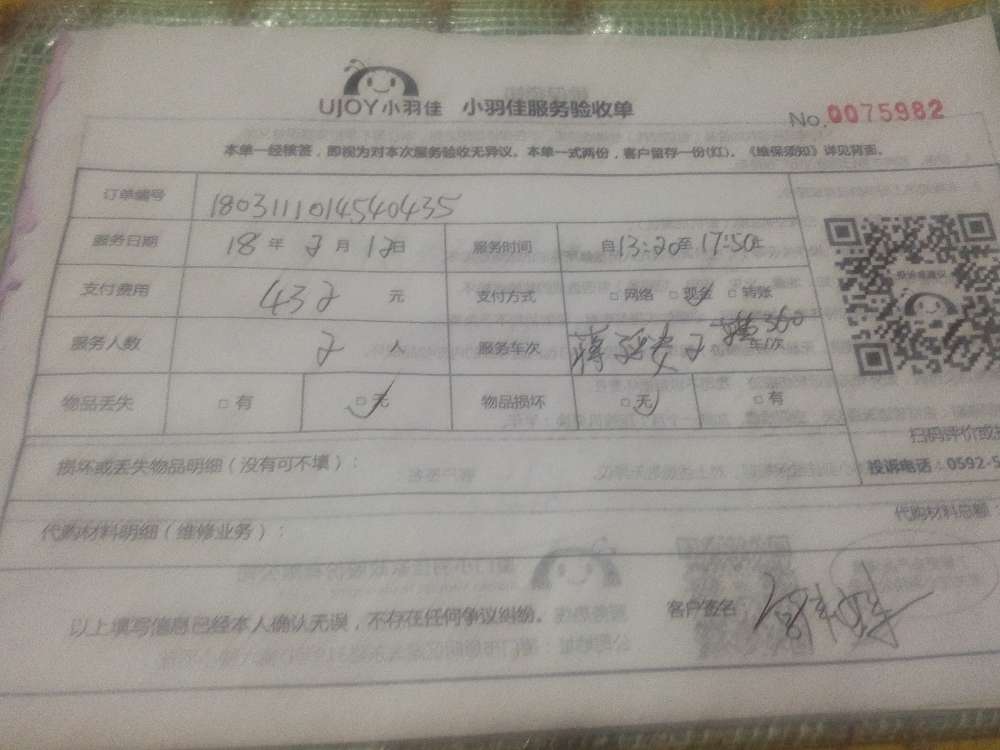 UJOY小羽佳 小羽佳服务验收单
No.0075982
本单一经核签，即视为对本次服务验收无异议。本单一式两份，客户留存一份(红)。《维保须知》详见背面。
订单编号 1803111014540435
服务日期 18年2月12日 服务时间 自13:20至17:50止
支付费用 432元 支付方式 □网络 □现金 □转账
服务人数 2人 服务车次 360 车/次
物品丢失 □有 □无 物品损坏 □无 □有
扫码评价或
损坏或丢失物品明细（没有可不填）：
投诉电话：0592-5
代购材料总额
代购材料明细（维修业务）：
以上填写信息已经本人确认无误，不存在任何争议纠纷。 客户签名